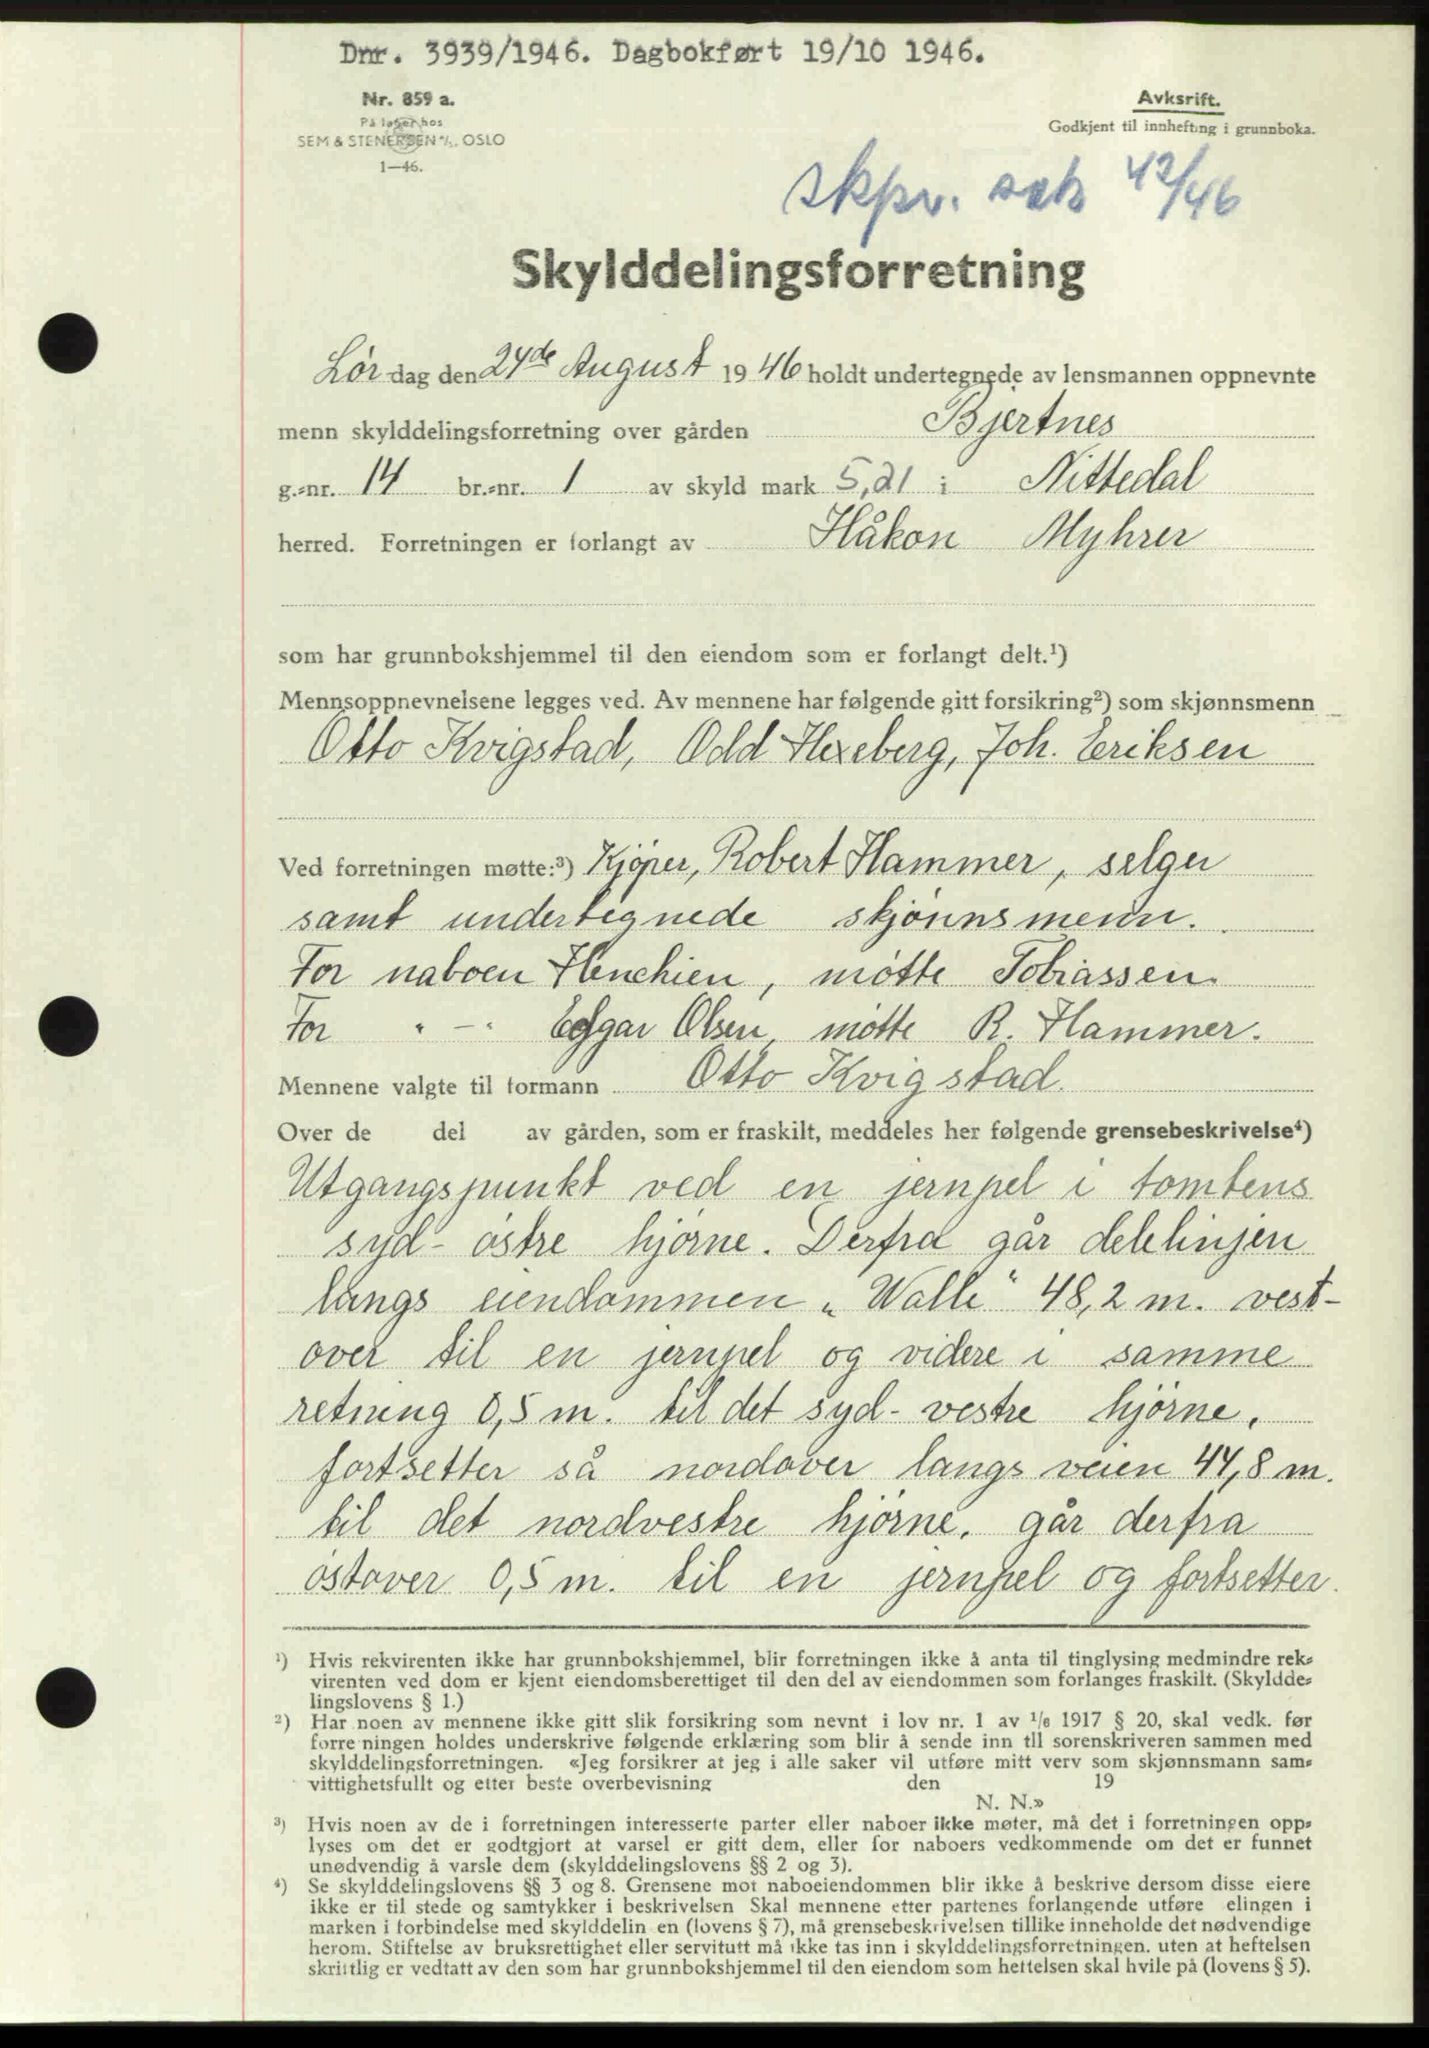 Dnr. 3939/1946. Dagbokført 19/10 1946.
Nr. 859 a.
På lager hos
SEM & STENERSEN A/S, OSLO
1—46.
Avksrift.
Godkjent til innhefting i grunnboka.
skpv. sak 42/46
Skylddelingsforretning
Lør dag den 24de August 1946 holdt undertegnede av lensmannen oppnevnte
menn skylddelingsforretning over gården Bjertnes
g.-nr. 14 br.-nr. 1 av skyld mark 5,21 i Nittedal
herred. Forretningen er forlangt av Håkon Myhrer
som har grunnbokshjemmel til den eiendom som er forlangt delt.¹)
Mennsoppnevnelsene legges ved. Av mennene har følgende gitt forsikring²) som skjønnsmenn
Otto Kvigstad, Odd Hexeberg, Joh. Eriksen
Ved forretningen møtte:³) Kjöper, Robert Hammer, selger
samt undertegnede skjönnsmenn.
For naboen Henchien, mötte Tobiassen.
For " — " Edgar Olsen, mötte R. Hammer.
Mennene valgte til formann Otto Kvigstad.
Over de del av gården, som er fraskilt, meddeles her følgende grensebeskrivelse⁴)
Utgangspunkt ved en jernpel i tomtens
syd- östre hjörne. Derfra går delelinjen
langs eiendommen „Walle" 48,2 m. vest-
over til en jernpel og videre i samme
retning 0,5 m. til det syd- vestre hjörne,
fortsetter så nordover langs veien 44,8 m.
til det nordvestre hjörne, går derfra
östover 0,5 m. til en jernpel og fortsetter
¹) Hvis rekvirenten ikke har grunnbokshjemmel, blir forretningen ikke å anta til tinglysing medmindre rek-
virenten ved dom er kjent eiendomsberettiget til den del av eiendommen som forlanges fraskilt. (Skyldde-
lingslovens § 1.)
²) Har noen av mennene ikke gitt slik forsikring som nevnt i lov nr. 1 av 1/6 1917 § 20, skal vedk. før
forre ningen holdes underskrive følgende erklæring som blir å sende inn til sorenskriveren sammen med
skylddelingsforretningen. «Jeg forsikrer at jeg i alle saker vil utføre mitt verv som skjønnsmann sam-
vittighetsfullt og etter beste overbevisning den 19
N. N.»
³) Hvis noen av de i forretningen interesserte parter eller naboer ikke møter, må det i forretningen opp-
lyses om det er godtgjort at varsel er gitt dem, eller for naboers vedkommende om det er funnet
unødvendig å varsle dem (skylddelingslovens §§ 2 og 3).
⁴) Se skylddelingslovens §§ 3 og 8. Grensene mot naboeiendommen blir ikke å beskrive dersom disse eiere
ikke er til stede og samtykker i beskrivelsen Skal mennene etter partenes forlangende utføre elingen i
marken i forbindelse med skylddelin en (lovens § 7), må grensebeskrivelsen tillike inneholde det nødvendige
herom. Stiftelse av bruksrettighet eller servitutt må ikke tas inn i skylddelingsforretningen, uten at heftelsen
skriftlig er vedtatt av den som har grunnbokshjemmel til den eiendom som heftelsen skal hvile på (lovens § 5).